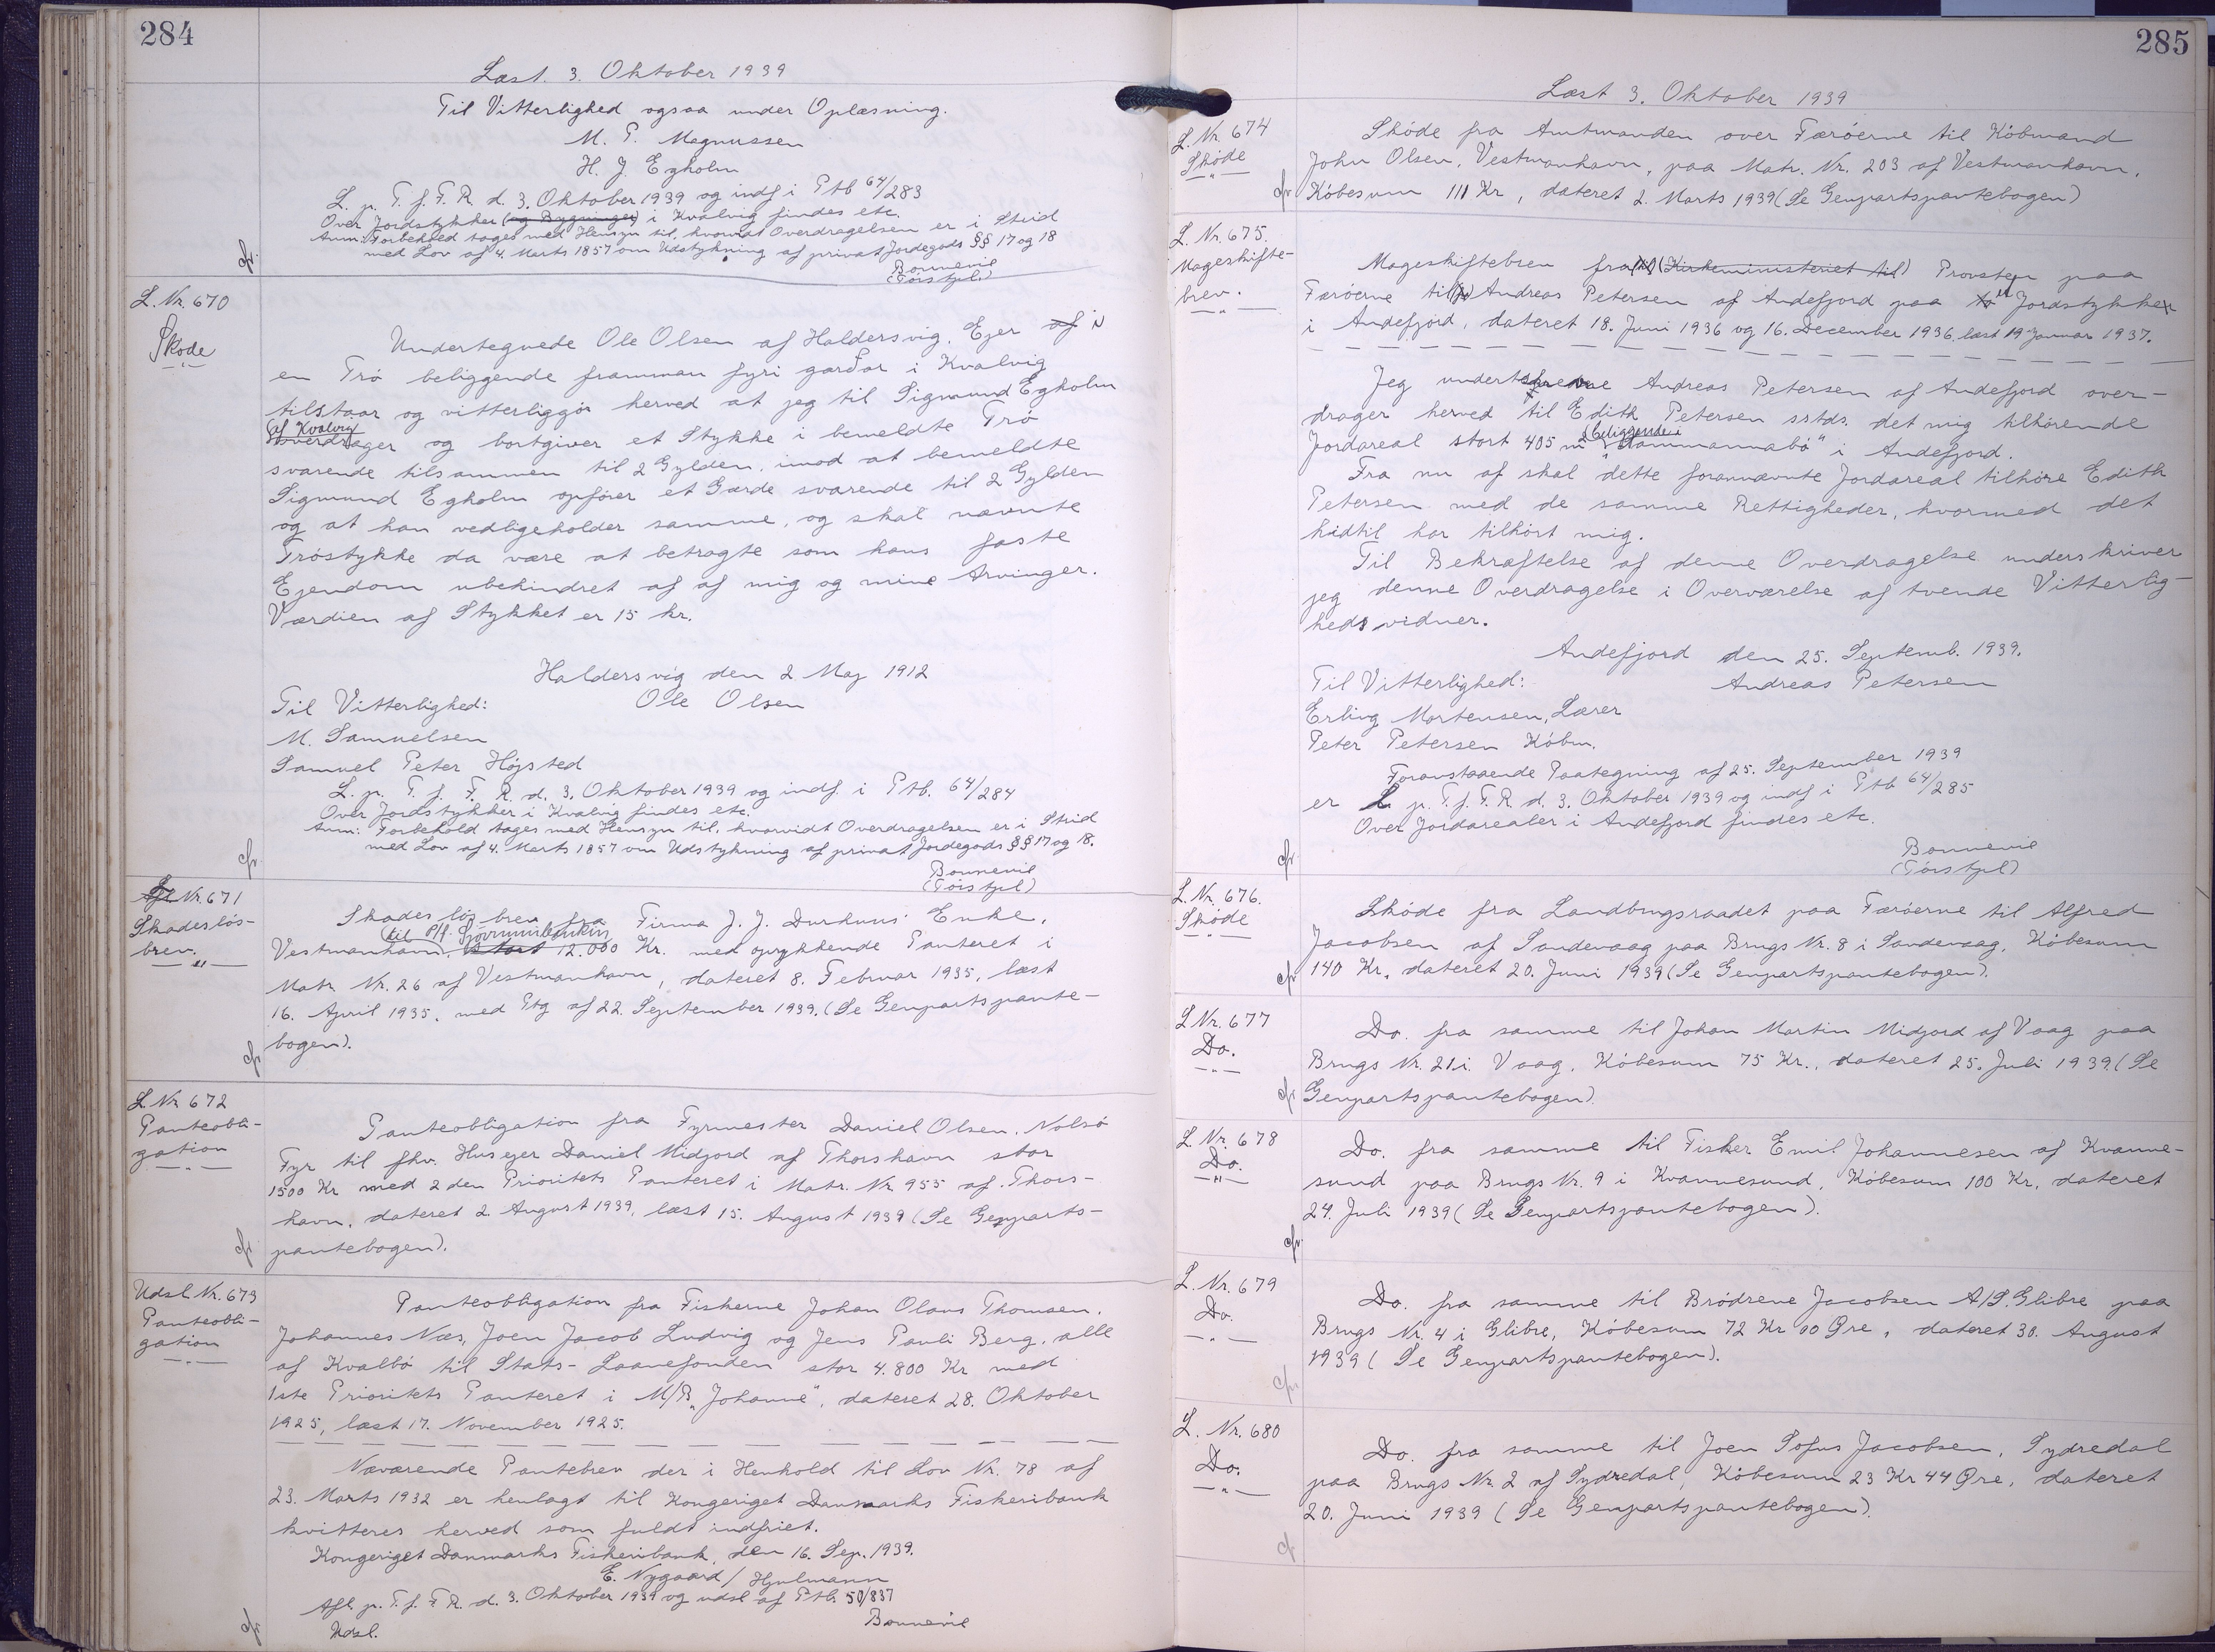 284
Læst. 3. Oktober 1939
Til Vitterlighed ogsaa under Oplæsning.
M. P. Magnussen
H. J. Egholm
L. p. T. f. F. R. d. 3. Oktober 1939 og indf i Ptb 64/283
Over Jordstykker (og Bygninger) i Kvalvig findes etc.
Anm: Forbehold tages med Hensyn til, hvorvidt Overdragelsen er i Strid
med Lov af 4. Marts 1857 om Udstykning af privat Jordegods §§ 17 og 18
Bonnevie
(Tórs tpl.)
cfr.
L. Nr. 670
Skøde
Undertegnede Ole Olsen af Haldersvig. Ejer af
en Trö beliggende framman fyri garðar i Kvalvig
tilstaar og vitterliggör herved at jeg til Sigmund Egholm
af Kvalvig
overdrager og bortgiver et Stykke i bemeldte Trö
svarende tilsammen til 2 Gylden, imod at bemeldte
Sigmund Egholm opfører et Gærde svarende til 2 Gylden
og at han vedligeholder samme, og skal nævnte
Tröstykke da være at betragte som hans faste
Ejendom ubehindret af af mig og mine Arvinger.
Værdien af Stykket er 15 kr.
Haldersvig den 2 Maj 1912
Til Vitterlighed: Ole Olsen
M. Samuelsen
Samuel Peter Højsted
L. p. T. f. F. R. d. 3. Oktober 1939 og indf. i Ptb. 64/284
Over Jordstykker i Kvalvig findes etc.
Anm: Forbehold tages med Hensyn til, hvorvidt Overdragelsen er i Strid
med Lov af 4. Marts 1857 om Udstykning af privat Jordegods §§ 17 og 18.
Bonnevie
(Tórs tpl)
cfr.
Nr. 671
Skadeslös-
brev.
Skadeslösbrev fra Firma J. J. Durhuus' Enke,
til P/f. Sjóvinnubankin
Vestmanhavn, stort 12.000 Kr. med oprykkende Panteret i
Matr. Nr. 26 af Vestmanhavn, dateret 8. Februar 1935, læst
16. April 1935, med Ptg af 22. September 1939. (Se Genpartspante-
bogen).
cfr
L Nr. 672
Panteobli-
gation
Panteobligation fra Fyrmester Daniel Olsen. Nolsö
Fyr til fhv. Husejer Daniel Midjord af Thorshavn stor
1500 Kr med 2den Prioritets Panteret i Matr. Nr. 955 af Thors-
havn, dateret 2. August 1939, læst 15. August 1939 (Se Genparts-
pantebogen).
cfr
Udsl. Nr. 673
Panteobli-
gation
Panteobligation fra Fiskerne Johan Olaus Thomsen,
Johannes Næs, Joen Jacob Ludvig og Jens Pauli Berg, alle
af Kvalbö til Stats-Laanefonden stor 4.800 Kr med
1ste Prioritets Panteret i M/B „Johanne", dateret 28. Oktober
1925, læst 17. November 1925.
Nærværende Pantebrev der i Henhold til Lov Nr. 78 af
23. Marts 1932 er henlagt til Kongeriget Danmarks Fiskeribank
kvitteres herved som fuldt indfriet.
Kongeriget Danmarks Fiskeribank, den 16. Sep. 1939.
E. Nygaard / Hjulmann
Afl. p. T. f. F. R. d. 3. Oktober 1939 og udsl af Ptb. 50/837
Udsl. Bonnevie
cfr.
285
Læst 3. Oktober 1939
L. Nr. 674
Sköde
Sköde fra Amtmanden over Færöerne til Köbmand
John Olsen, Vestmanhavn, paa Matr. Nr. 203 af Vestmanhavn,
Köbesum 111 Kr, dateret 2. Marts 1939 (Se Genpartspantebogen)
cfr
L. Nr. 675.
Mageskifte-
brev.
Mageskiftebrev fra (Kirkeministeriet til) Provsten paa
Færöerne til Andreas Petersen af Andefjord paa Jordstykker
i Andefjord, dateret 18. Juni 1936 og 16. December 1936, læst 19 Januar 1937.
Jeg undertegnede Andreas Petersen af Andefjord over-
drager herved til Edith Petersen sstds. det mig tilhörende
beliggende i
Jordareal stort 405 m² „Hammannabö" i Andefjord.
Fra nu af skal dette forannævnte Jordareal tilhöre Edith
Petersen med de samme Rettigheder, hvormed det
hidtil har tilhört mig.
Til Bekræftelse af denne Overdragelse underskriver
jeg denne Overdragelse i Overværelse af tvende Vitterlig-
hedsvidner.
Andefjord den 25. Septemb. 1939.
Til Vitterlighed: Andreas Petersen
Erling Mortensen, Lærer
Peter Petersen Köbm.
Foranstaaende Paategning af 25. September 1939
er L p. T. f. F. R. d. 3. Oktober 1939 og indf i Ptb 64/285
Over Jordarealer i Andefjord findes etc.
Bonnevie
(Tórs tpl)
cfr
L. Nr. 676.
Sköde
Sköde fra Landbugsraadet paa Færöerne til Alfred
Jacobsen af Sandevaag paa Brugs Nr. 8 i Sandevaag, Köbesum
140 Kr. dateret 20. Juni 1939 (Se Genpartspantebogen).
cfr
L Nr. 677
Do.
Do. fra samme til Johan Martin Midjord af Vaag paa
Brugs Nr. 21 i Vaag. Köbesum 75 Kr., dateret 25. Juli 1939 (Se
Genpartspantebogen).
cfr
L. Nr. 678
Do.
Do. fra samme til Fisker Emil Johannesen af Kvanne-
sund paa Brugs Nr. 9 i Kvannesund, Köbesum 100 Kr, dateret
24. Juli 1939 (Se Genpartspantebogen).
cfr
L. Nr. 679
Do.
Do. fra samme til Brödrene Jacobsen A/S. Glibre paa
Brugs Nr. 4 i Glibre, Köbesum 72 Kr 00 Øre, dateret 30. August
1939 (Se Genpartspantebogen).
cfr
L. Nr. 680
Do.
Do. fra samme til Joen Sofus Jacobsen, Sydredal
paa Brugs Nr. 2 af Sydredal, Köbesum 23 Kr 44 Øre, dateret
20. Juni 1939 (Se Genpartspantebogen).
cfr